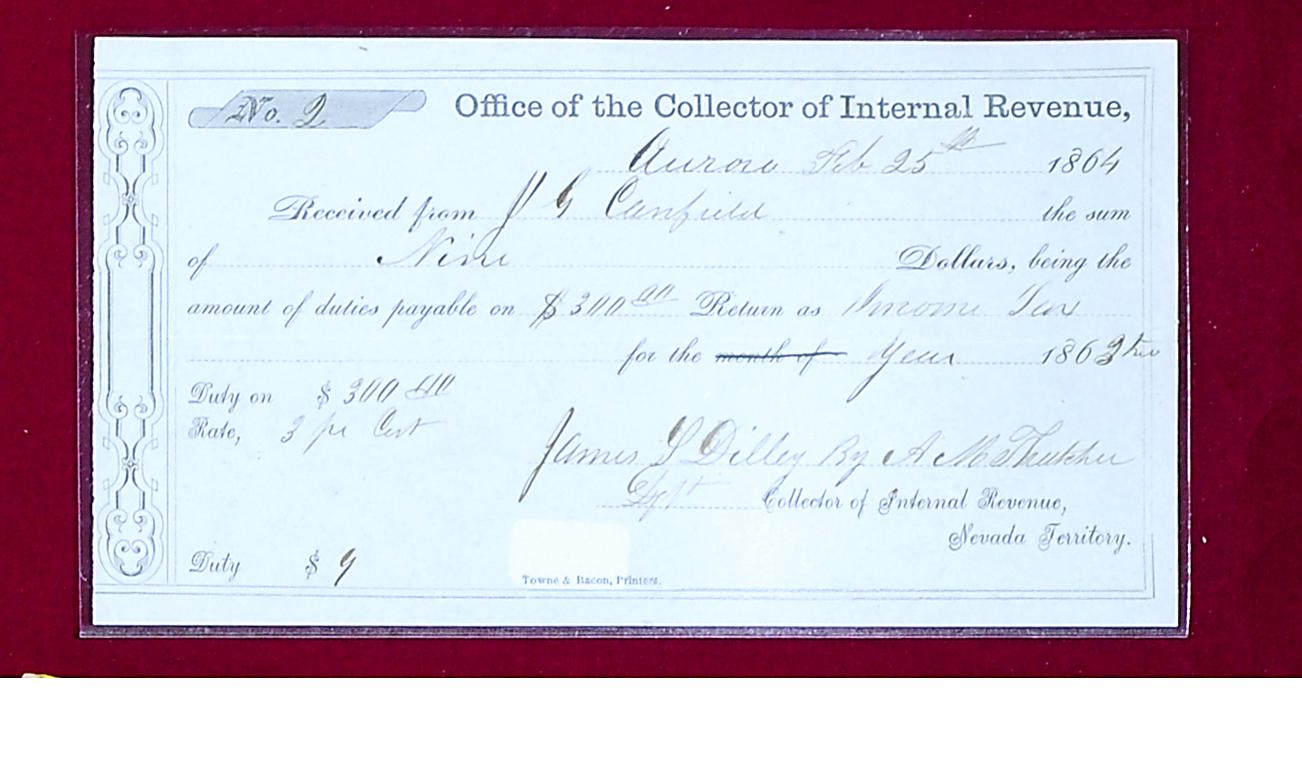 No. 2 Office of the Collector of Internal Revenue,
Aurora Feb 25th 1864
Received from J G Canfield the sum
of Nine Dollars, being the
amount of duties payable on $300 00 Return as Income Tax
for the month of Year 1862
Duty on $ 300 00
Rate, 3 pr Cent
James S Dilley By A M Thatcher
Dept Collector of Internal Revenue,
Nevada Territory.
Duty $ 9
Towne & Bacon, Printers.